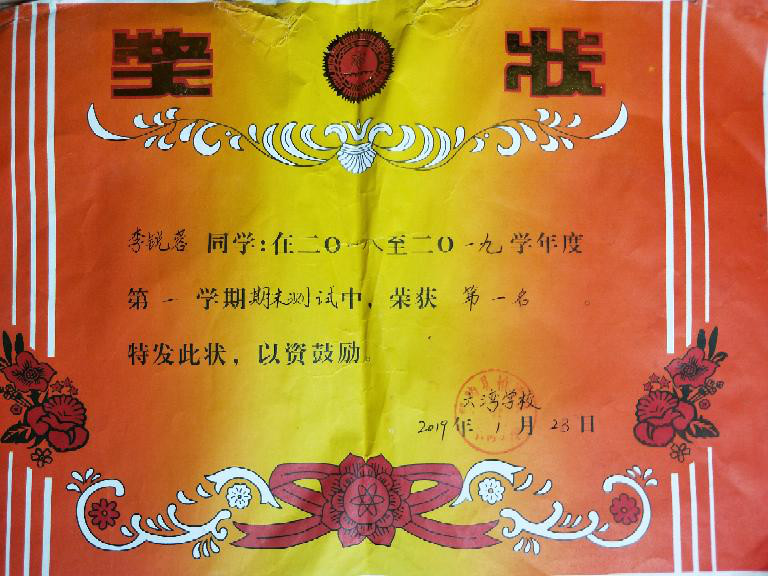 奖状
李锐蓉 同学：在二〇一八至二〇一九学年度
第一学期期末测试中，荣获 第一名。
特发此状，以资鼓励。
大湾学校
2019年1月23日